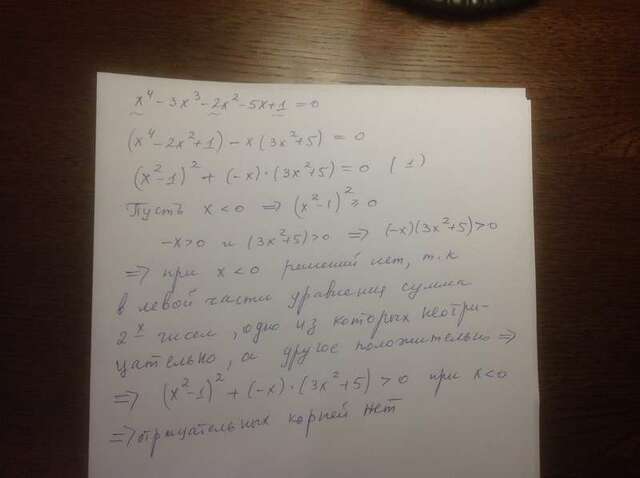 x⁴ - 3x³ - 2x² - 5x + 1 = 0
(x⁴ - 2x² + 1) - x(3x² + 5) = 0
(x² - 1)² + (-x)·(3x² + 5) = 0 (1)
Пусть x < 0 ⇒ (x² - 1)² ≥ 0
-x > 0 и (3x² + 5) > 0 ⇒ (-x)(3x² + 5) > 0
⇒ при x < 0 решений нет, т.к
в левой части уравнения сумма
2ˣ чисел, одно из которых неотри-
цательно, а другое положительно ⇒
⇒ (x² - 1)² + (-x)·(3x² + 5) > 0 при x < 0
⇒ отрицательных корней нет